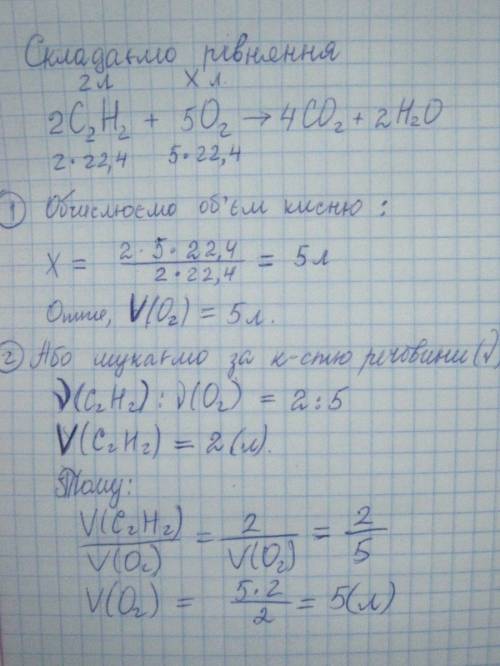 Складаємо рівняння
2л X л.
2C₂H₂ + 5O₂ → 4CO₂ + 2H₂O
2·22,4 5·22,4
① Обчислюємо об'єм кисню :
X = 2·5·22,4 / 2·22,4 = 5л
Отже, V(O₂) = 5л.
② Або шукаємо за к-стю речовини (ν)
ν(C₂H₂) : ν(O₂) = 2:5
V(C₂H₂) = 2(л).
Тому:
V(C₂H₂) / V(O₂) = 2 / V(O₂) = 2 / 5
V(O₂) = 5·2 / 2 = 5(л)